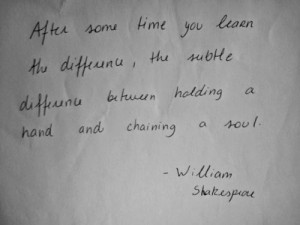 After some time you learn
the difference, the subtle
difference between holding a
hand and chaining a soul.
- William
Shakespeare